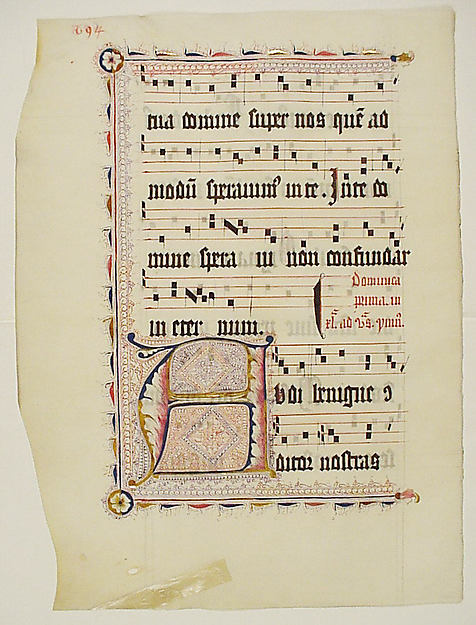 694
tua domine super nos quē ad
modū sperauimꝰ in te. In te do
mine spera ui non confundar
in eter num.
Dominica
prima in
xl. ad vs. ymn.
Audi benigne ↄ
ditor nostras